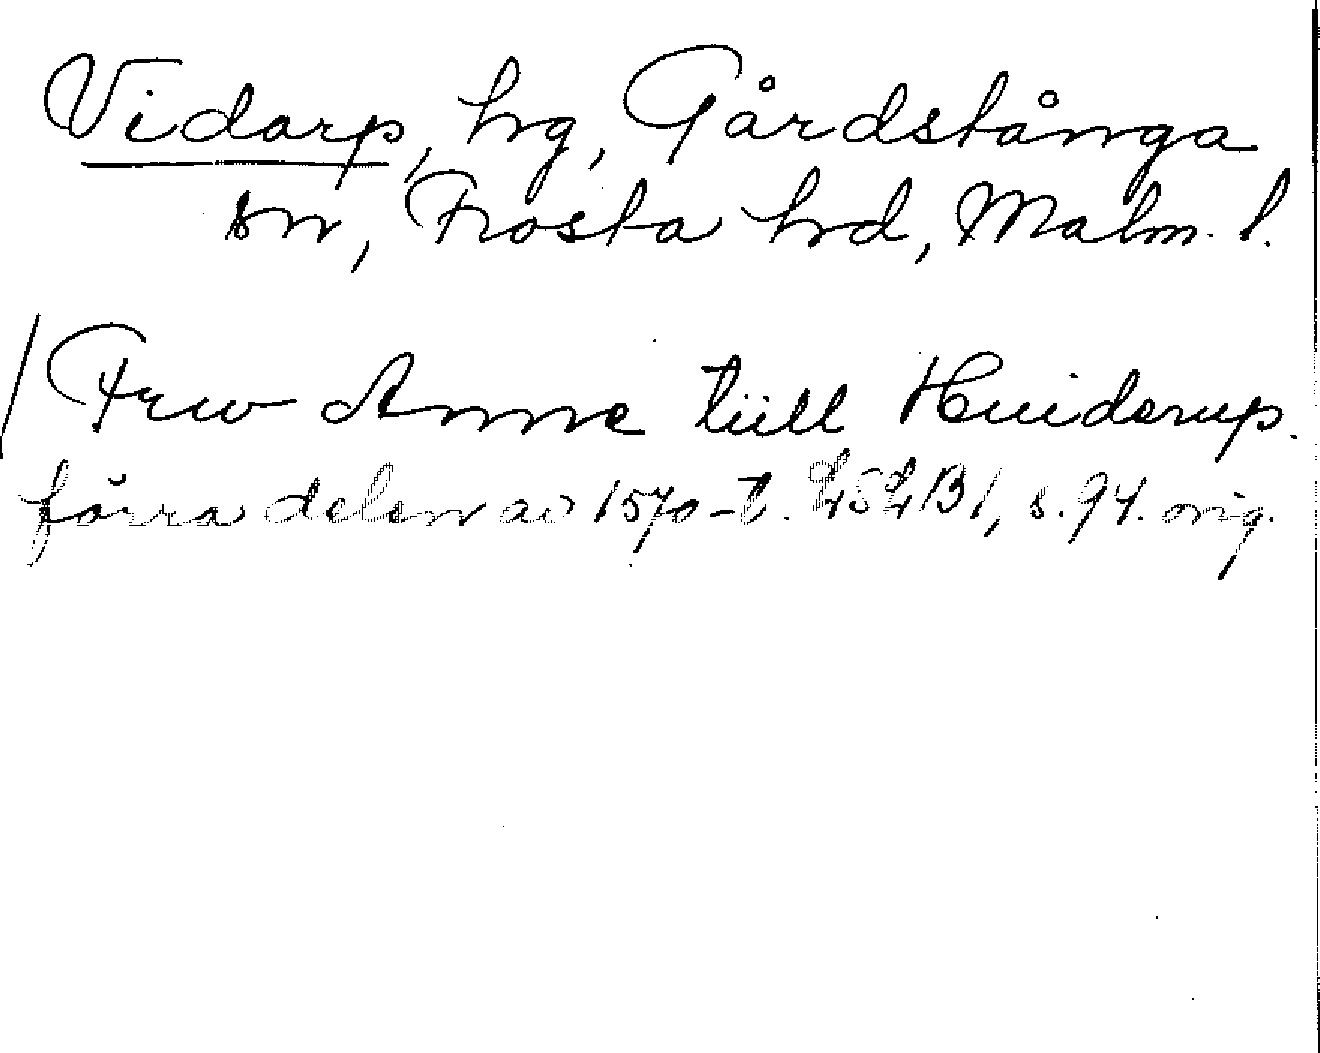 Vidarp, hg, Gårdstånga
sn, Frosta hd, Malm. l.
/ Frw Anne tiill Huiderup.
förra delen av 1570-t. LSLB1, s. 94. orig.